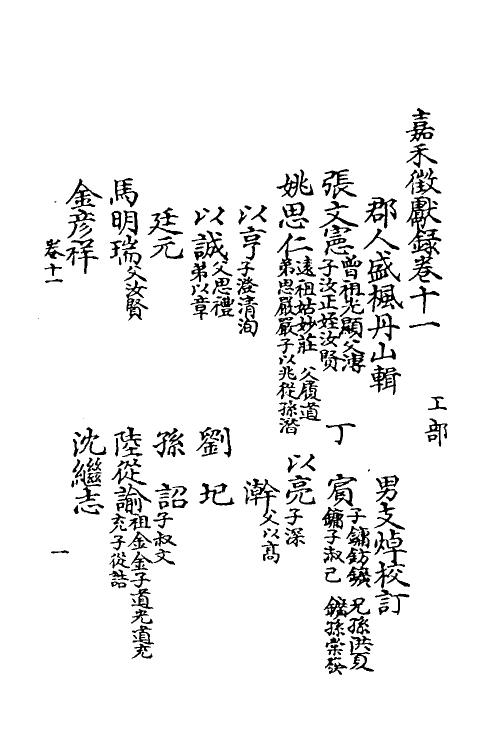 嘉禾徵獻録卷十一　工部
郡人盛楓丹山輯　男支焯校訂
張文憲曾祖光顯父溥子汝正姪汝賢　丁　賓子鏞鈁鑛　兄孫洪夏鏞子淑己　鑛孫崇
姚思仁遠祖姑妙莊　父履道弟思嚴嚴子以兆從孫潜　以亮子深
以亨子澄清洵　澣父以高
以誠父思禮弟以章　劉　圯
廷元　孫　詔子叔文
馬明瑞父汝賢　陸從諭祖金金子道光道充充子從誥
金彦祥　沈繼志
卷十一　一